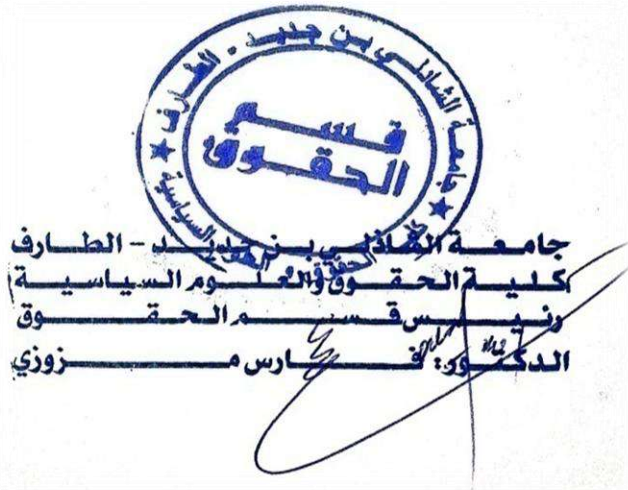 جامعة الشاذلي بن جديد - الطارف
كلية الحقوق والعلوم السياسية
قسم
الحقوق
جامعة الشاذلي بن جديد – الطارف
كلية الحقوق والعلوم السياسية
رئيس قسم الحقوق
الدكتور: فارس مزوزي